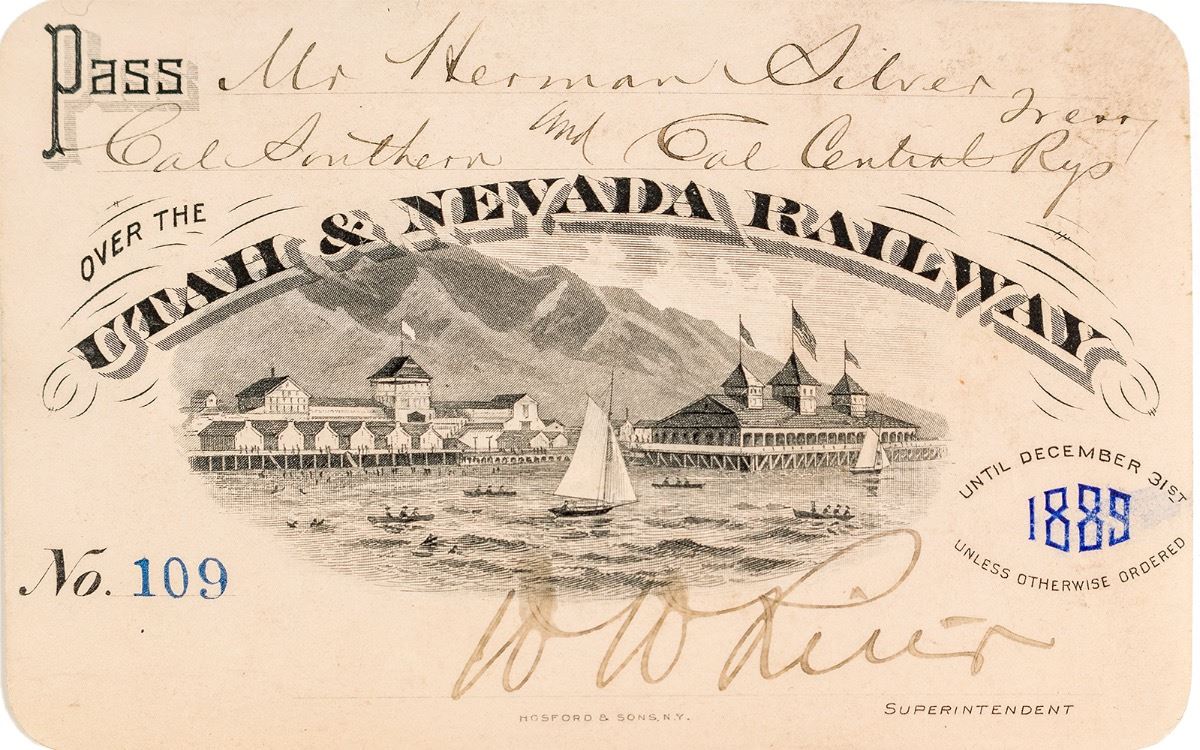 Pass Mr Herman Silver Treas
Cal Southern and Cal Central Rys
OVER THE
UTAH & NEVADA RAILWAY
UNTIL DECEMBER 31ST
1889
UNLESS OTHERWISE ORDERED
No. 109
W W
SUPERINTENDENT
HOSFORD & SONS, N.Y.